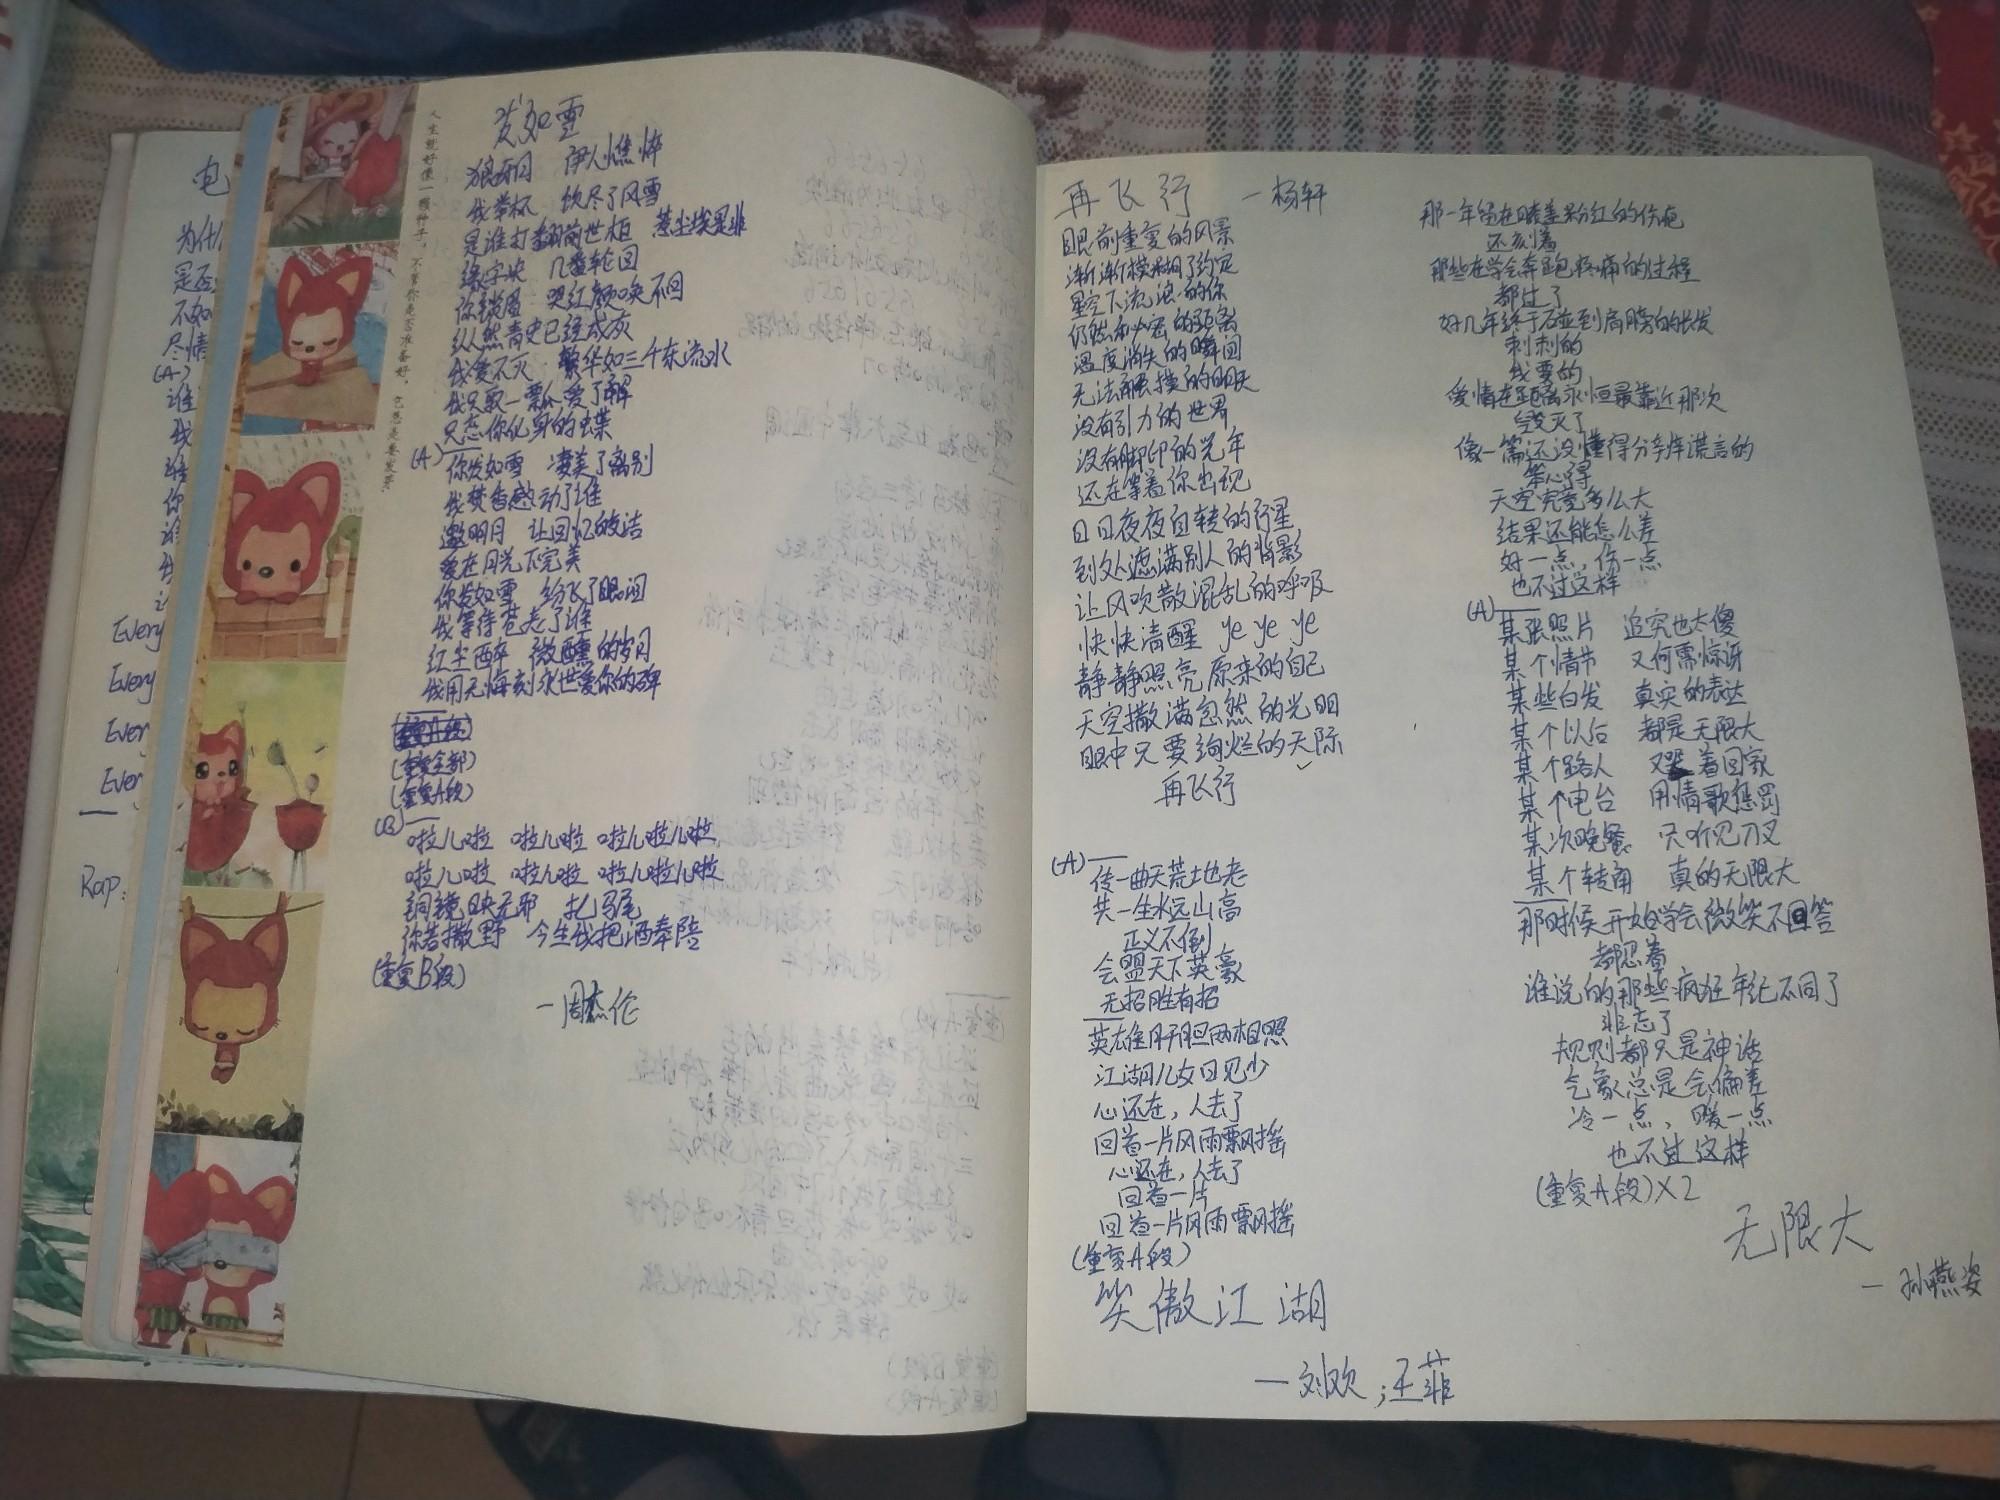 电
为什
是否
不如
尽情
(A)
谁
我
谁
你
Every
Every
Ever
Ever
Rap:
人生就好像一颗种子，不管你是否准备好，它总是要发芽。
发如雪
狼牙月 伊人憔悴
我举杯 饮尽了风雪
是谁打翻前世柜 惹尘埃是非
缘字诀 几番轮回
你锁眉 哭红颜唤不回
纵然青史已经成灰
我爱不灭 繁华如三千东流水
我只取一瓢爱了解
只恋你化身的蝶
(A)
你发如雪 凄美了离别
我焚香感动了谁
邀明月 让回忆皎洁
爱在月光下完美
你发如雪 纷飞了眼泪
我等待苍老了谁
红尘醉 微醺的岁月
我用无悔刻永世爱你的碑
(重复全部)
(重复A段)
(B)
啦儿啦 啦儿啦 啦儿啦儿啦
啦儿啦 啦儿啦 啦儿啦儿啦
铜镜映无邪 扎马尾
你若撒野 今生我把酒奉陪
(重复B段)
一周杰伦
再飞行 一杨轩
眼前重复的风景
渐渐模糊了约定
星空下流浪的你
仍然秘密的距离
温度消失的瞬间
无法触摸的明天
没有引力的世界
没有脚印的光年
还在等着你出现
日日夜夜自转的行星
到处遮满别人的背影
让风吹散混乱的呼吸
快快清醒 ye ye ye
静静照亮原来的自己
天空撒满忽然的光明
眼中只要绚烂的天际
再飞行
(A)
传一曲天荒地老
共一生水远山高
正义不倒
会盟天下英豪
无招胜有招
英雄肝胆两相照
江湖儿女日见少
心还在，人去了
回首一片风雨飘摇
心还在，人去了
回首一片
回首一片风雨飘摇
(重复A段)
笑傲江湖
一刘欢；王菲
那一年留在膝盖粉红的伤疤
还刻着
那些在学会奔跑疼痛的过程
都过了
好几年终于碰到肩膀的长发
刺刺的
我要的
爱情在距离永恒最靠近那次
毁灭了
像一篇还没懂得分辛辣谎言的
笨心得
天空究竟多么大
结果还能怎么差
好一点，伤一点
也不过这样
(A)
某张照片 追究也太傻
某个情节 又何需惊讶
某些白发 真实的表达
某个以后 都是无限大
某个路人 又哭着回家
某个电台 用情歌惩罚
某次晚餐 只听见刀叉
某个转角 真的无限大
那时候开始学会微笑不回答
都忍着
谁说的那些疯狂年纪不同了
非忘了
规则都只是神话
气象总是会偏差
冷一点，暖一点
也不过这样
(重复A段)×2
无限大
一孙燕姿